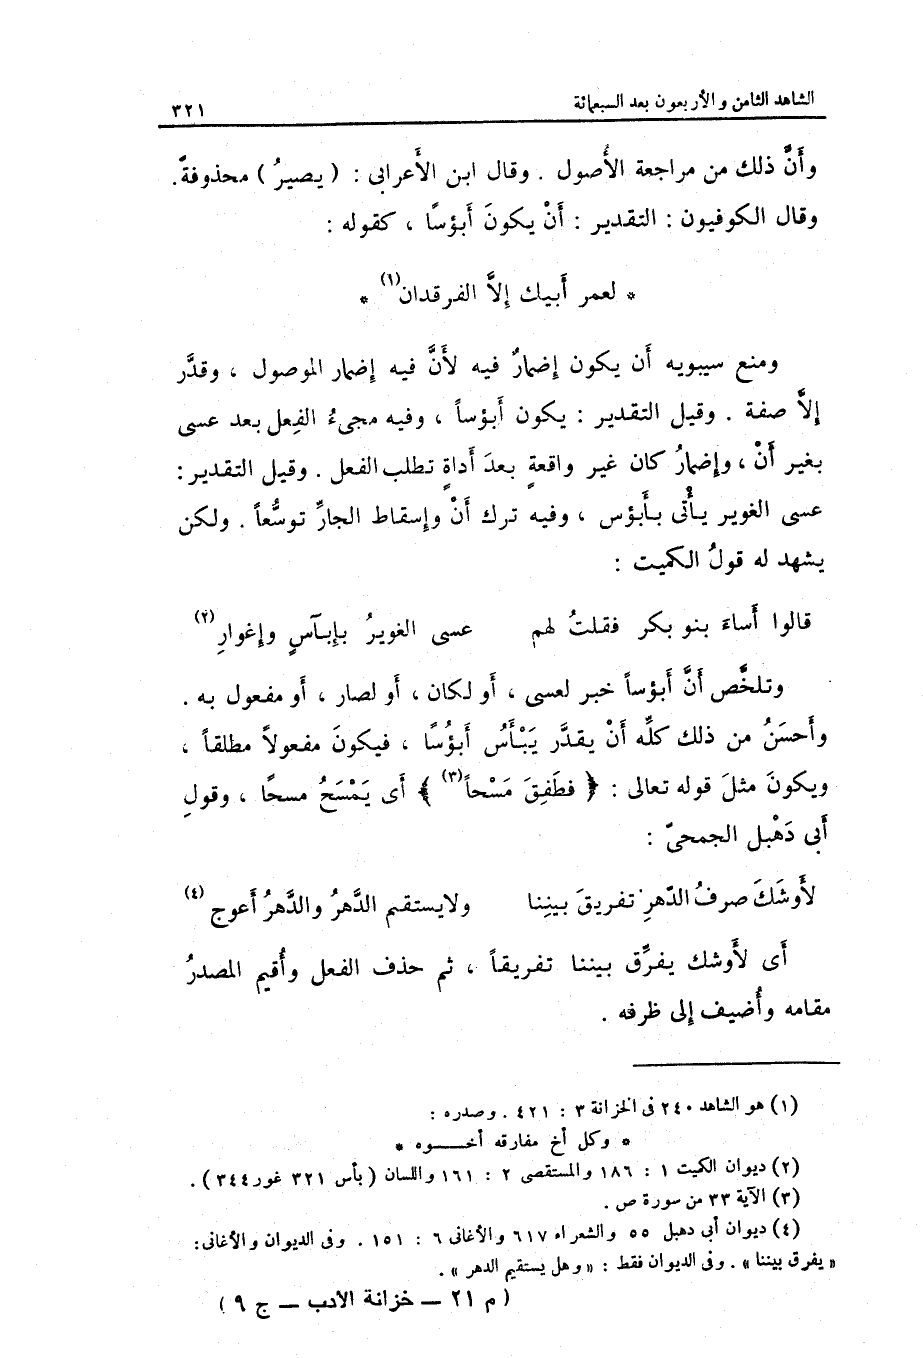 الشاهد الثامن والأربعون بعد السبعمائة ٣٢١
وأنَّ ذلك من مراجعة الأُصول . وقال ابن الأَعرابى : ( يصيرُ ) محذوفةٌ.
وقال الكوفيون : التقدير : أَنْ يكونَ أَبؤسًا ، كقوله :
* لعمر أَبيك إِلاَّ الفرقدان(١) *
ومنع سيبويه أَن يكون إِضمارٌ فيه لأَنَّ فيه إِضمار الموصول ، وقدَّر
إِلاَّ صفة . وقيل التقدير : يكون أَبؤساً ، وفيه مجىءُ الفِعل بعد عسى
بغير أَنْ ، وإِضمارُ كان غير واقعةٍ بعدَ أَداةٍ تطلب الفعل . وقيل التقدير :
عسى الغوير يأْتى بأَبؤس ، وفيه ترك أَنْ وإِسقاط الجارِّ توسُّعاً . ولكن
يشهد له قولُ الكميت :
قالوا أَساءَ بنو بكر فقلتُ لهم عسى الغويرُ بإِبآسٍ وإِغوارِ(٢)
وتلخَّص أَنَّ أَبؤساً خبر لعسى ، أَو لكان ، أَو لصار ، أَو مفعول به .
وأَحسَنُ من ذلك كلِّه أَنْ يقدَّر يَبْأَسُ أَبؤُسًا ، فيكونَ مفعولاً مطلقاً ،
ويكونَ مثلَ قوله تعالى : ﴿ فطَفِقَ مَسْحاً(٣) ﴾ أَى يَمْسَحُ مسحًا ، وقولِ
أَبى دَهْبل الجمحىّ :
لأَوشَكَ صرفُ الدّهرِ تفريقَ بينِنا ولايستقيم الدَّهرُ والدَّهرُ أَعوج(٤)
أَى لأَوشك يفرِّق بيننا تفريقاً ، ثم حذف الفعل وأُقيم المصدرُ
مقامه وأُضيف إِلى ظرفه .
(١) هو الشاهد ٢٤٠ فى الخزانة ٣ : ٤٢١ . وصدره :
* وكل أخ مفارقه أخـــوه *
(٢) ديوان الكيت ١ : ١٨٦ والمستقصى ٢ : ١٦١ واللسان ( بأس ٣٢١ غور ٣٤٤ ) .
(٣) الآية ٣٣ من سورة ص .
(٤) ديوان أبى دهبل ٥٥ والشعراء ٦١٧ والأغانى ٦ : ١٥١ . وفى الديوان والأغانى :
« يفرق بيننا » . وفى الديوان فقط : « وهل يستقيم الدهر » .
( م ٢١ – خزانة الأدب – ج ٩ )